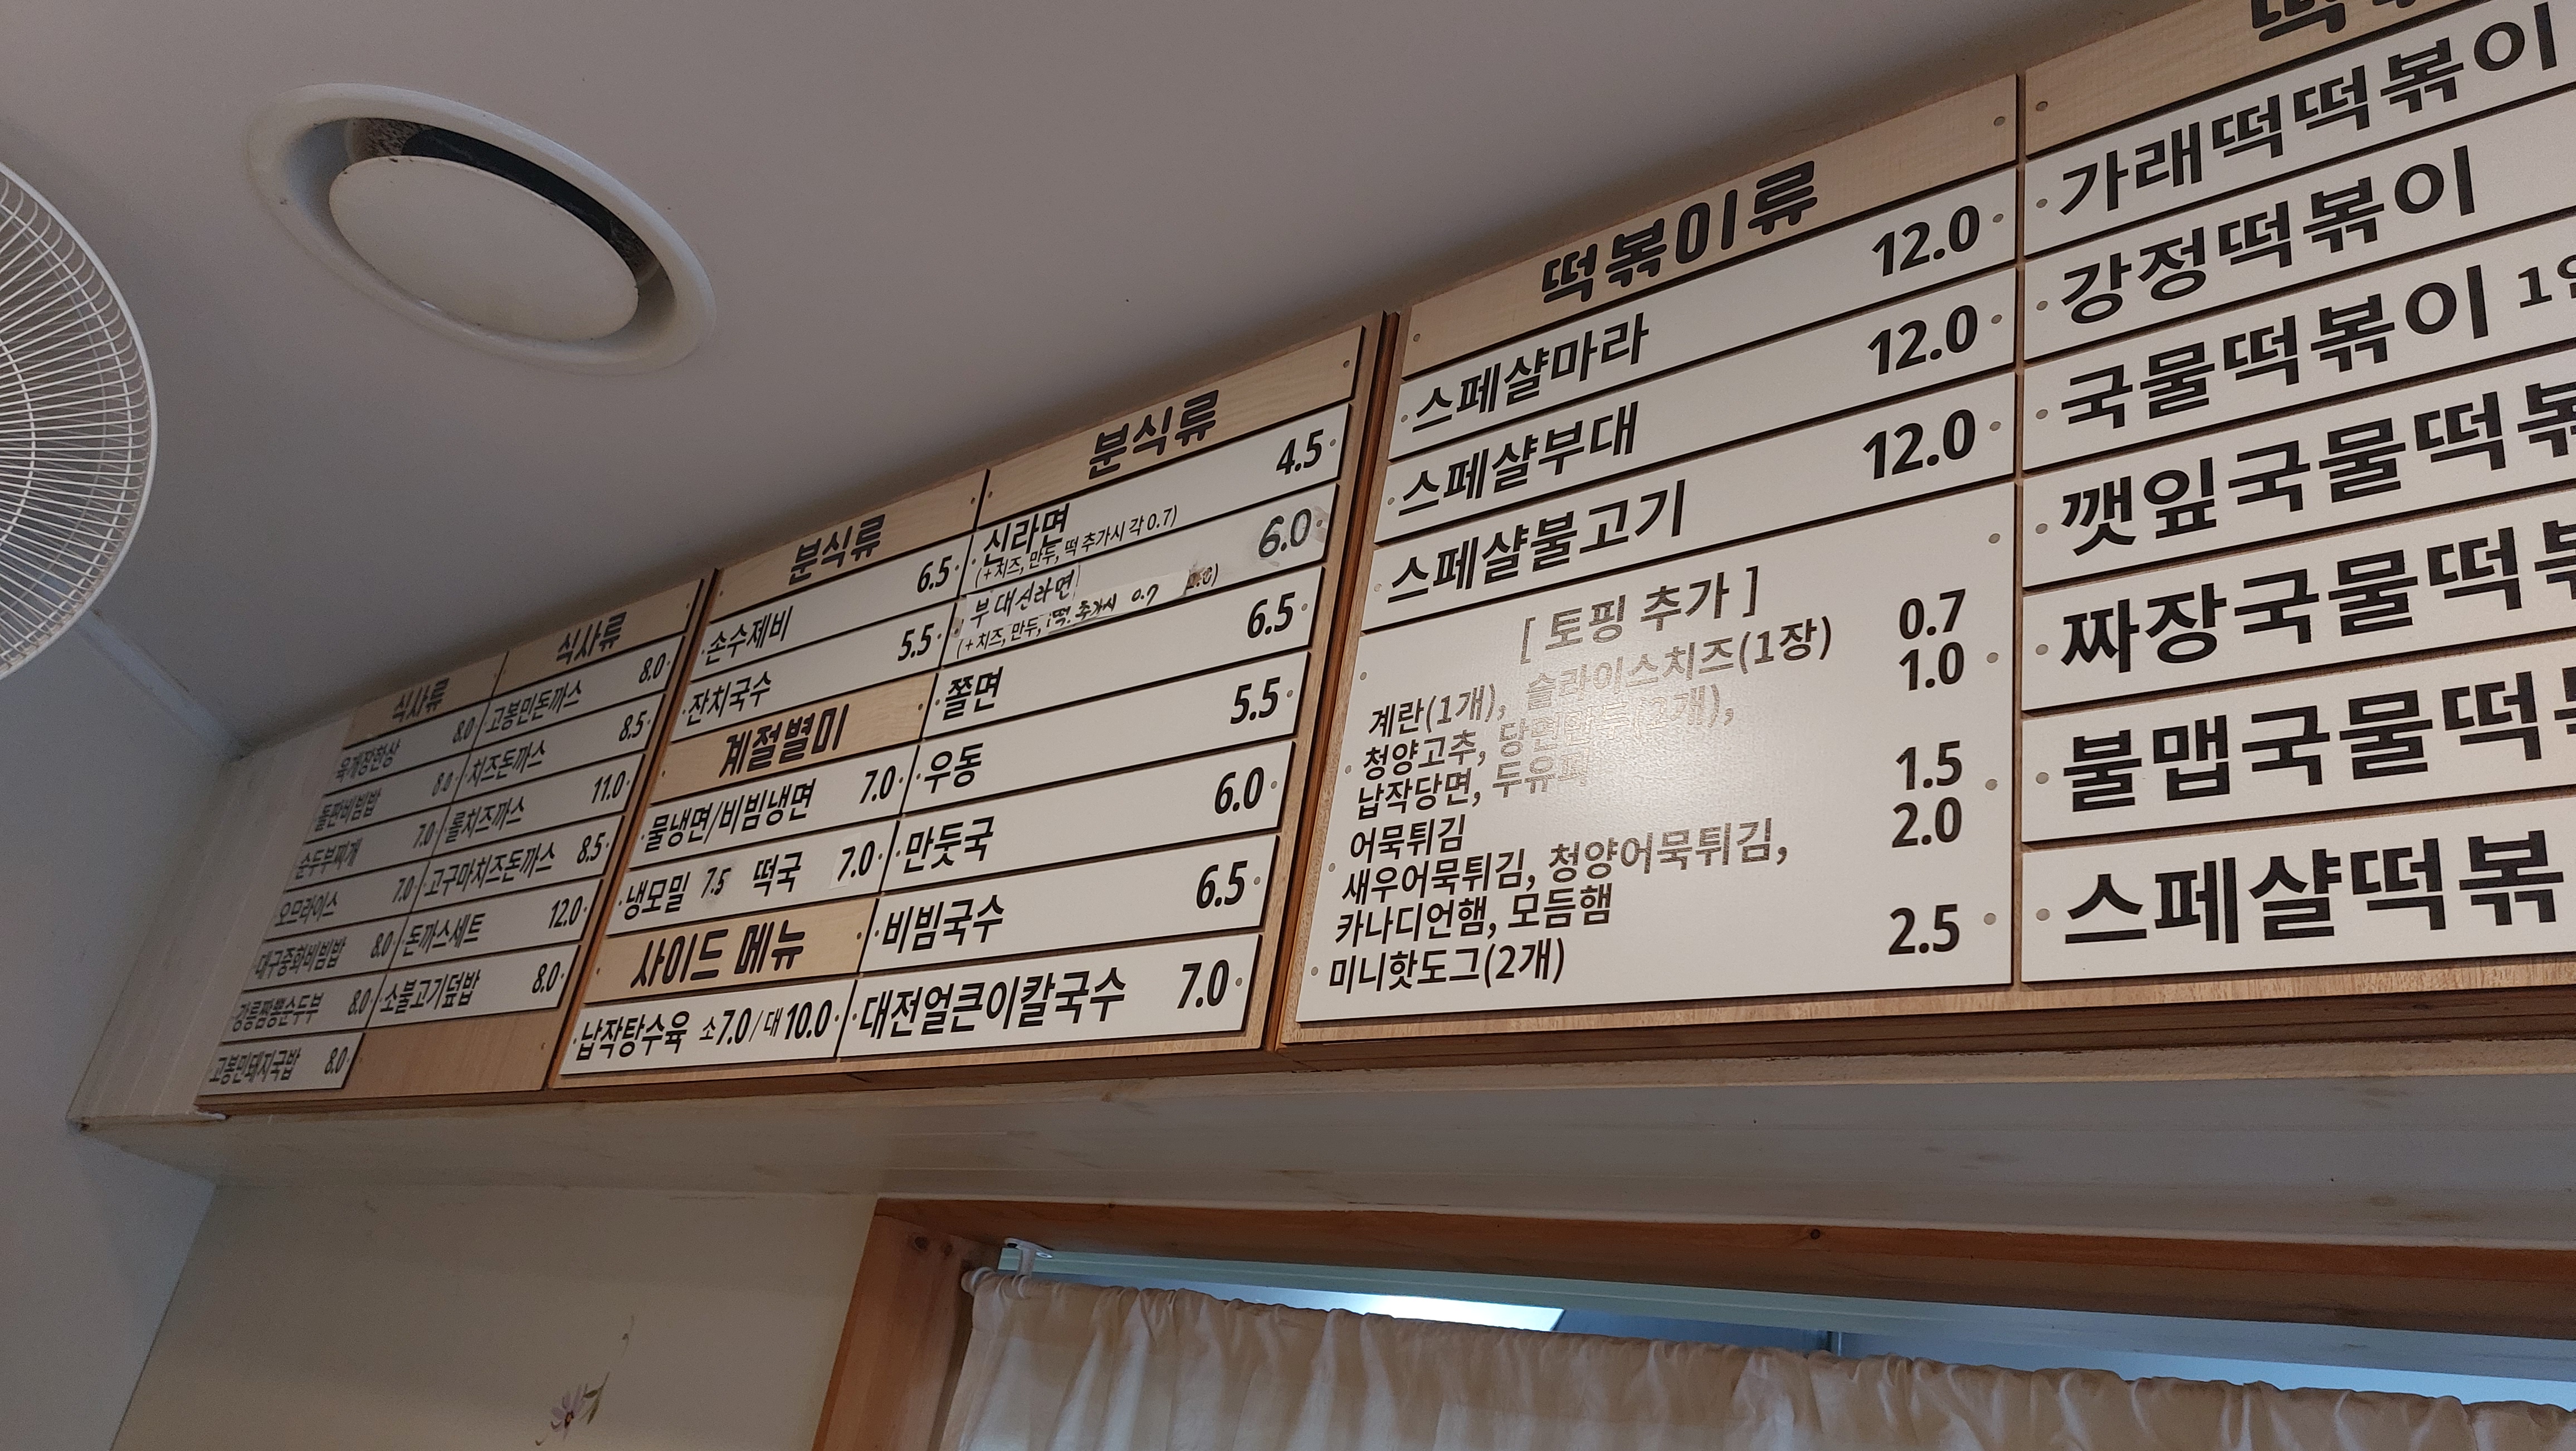 식사류
육개장한상 8.0
돌판비빔밥 8.0
순두부찌개 7.0
오므라이스 7.0
대구중화비빔밥 8.0
강릉짬뽕순두부 8.0
고봉민돼지국밥 8.0
식사류
고봉민돈까스 8.0
치즈돈까스 8.5
롤치즈까스 11.0
고구마치즈돈까스 8.5
돈까스세트 12.0
소불고기덮밥 8.0
분식류
손수제비 6.5
잔치국수 5.5
계절별미
물냉면/비빔냉면 7.0
냉모밀 7.5 떡국 7.0
사이드 메뉴
납작탕수육 소7.0/대10.0
분식류
신라면 4.5
(+치즈, 만두, 떡 추가시 각 0.7)
부대신라면 6.0
(+치즈, 만두, 떡 추가시 0.7
쫄면 6.5
우동 5.5
만둣국 6.0
비빔국수 6.5
대전얼큰이칼국수 7.0
떡볶이류
스페샬마라 12.0
스페샬부대 12.0
스페샬불고기 12.0
[ 토핑 추가 ]
계란(1개), 슬라이스치즈(1장) 0.7
청양고추, 당면만두(2개), 1.0
납작당면, 두유피
어묵튀김 1.5
새우어묵튀김, 청양어묵튀김, 2.0
카나디언햄, 모듬햄
미니핫도그(2개) 2.5
가래떡떡볶이
강정떡볶이
국물떡볶이
깻잎국물떡볶
짜장국물떡볶
불맵국물떡
스페샬떡볶